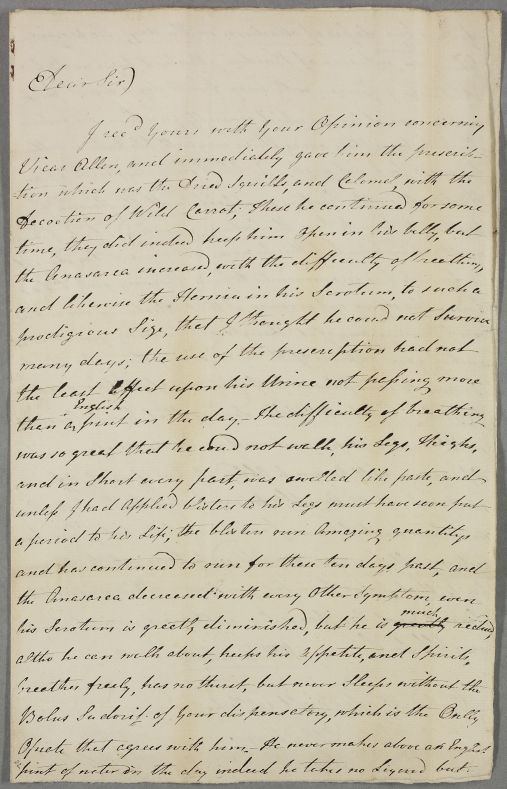 Dear Sir
I recd Yours with Your Opinion concerning
Vicar Allen, and immediately gave him the prescrip-
tion which was the Dried Squills, and Calomel, with the
Decoction of Wild Carrot; these he continued for some
time, they did indeed keep him open in his belly, but
the Anasarca increased, with the difficulty of breathing,
and likewise the Hernia in his Scrotum, to such a
prodigious Size, that I thought he could not Survive
many days; the use of the prescription had not
the least Effect upon his Urine not passing more
than a English pint in the day. The difficulty of breathing
was so great that he could not walk, his Legs, thighs,
and in Short every part, was swelled like paste, and
unless I had applied blisters to his Legs must have soon put
a period to his Life; the blisters run Amazing quantitys
and has continued to run for these ten days past, and
the Anasarca decreased with every Other Symptom, even
his Scrotum is greatly diminished, but he is greatly much reduced,
altho he can walk about, keeps his appetite, and Spirits,
breathes freely, has no thirst, but never Sleeps without the
Bolus Sudorif. of Your dispensatory, which is the Only
Opeate that agrees with him. He never makes above an English
pint of water in the day indeed he takes no Liquid but